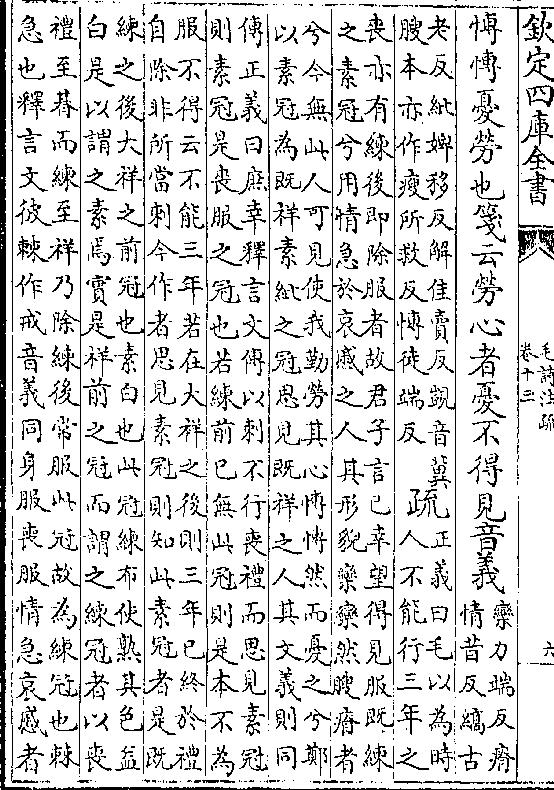 欽定四庫全書
毛詩注疏
卷十三
六
慱慱憂勞也箋云勞心者憂不得見音義
欒力端反瘠
情昔反縞古
老反紕婢移反解佳賣反覬音冀
瞍本亦作瘦所救反慱徒端反
疏
正義曰毛以為時
人不能行三年之
喪亦有練後即除服者故君子言已幸望得見服既練
之素冠兮用情急於哀慼之人其形貌欒欒然瞍瘠者
兮今無此人可見使我勤勞其心慱慱然而憂之兮鄭
以素冠為既祥素紕之冠思見既祥之人其文義則同
傳正義曰庶幸釋言文傳以刺不行喪禮而思見素冠
則素冠是喪服之冠也若練前已無此冠則是本不為
服不得云不能三年若在大祥之後則三年已終於禮
自除非所當刺今作者思見素冠則知此素冠者是既
練之後大祥之前冠也素白也此冠練布使熟其色益
白是以謂之素焉實是祥前之冠而謂之練冠者以喪
禮至朞而練至祥乃除練後常服此冠故為練冠也棘
急也釋言文彼棘作戒音義同身服喪服情急哀慼者